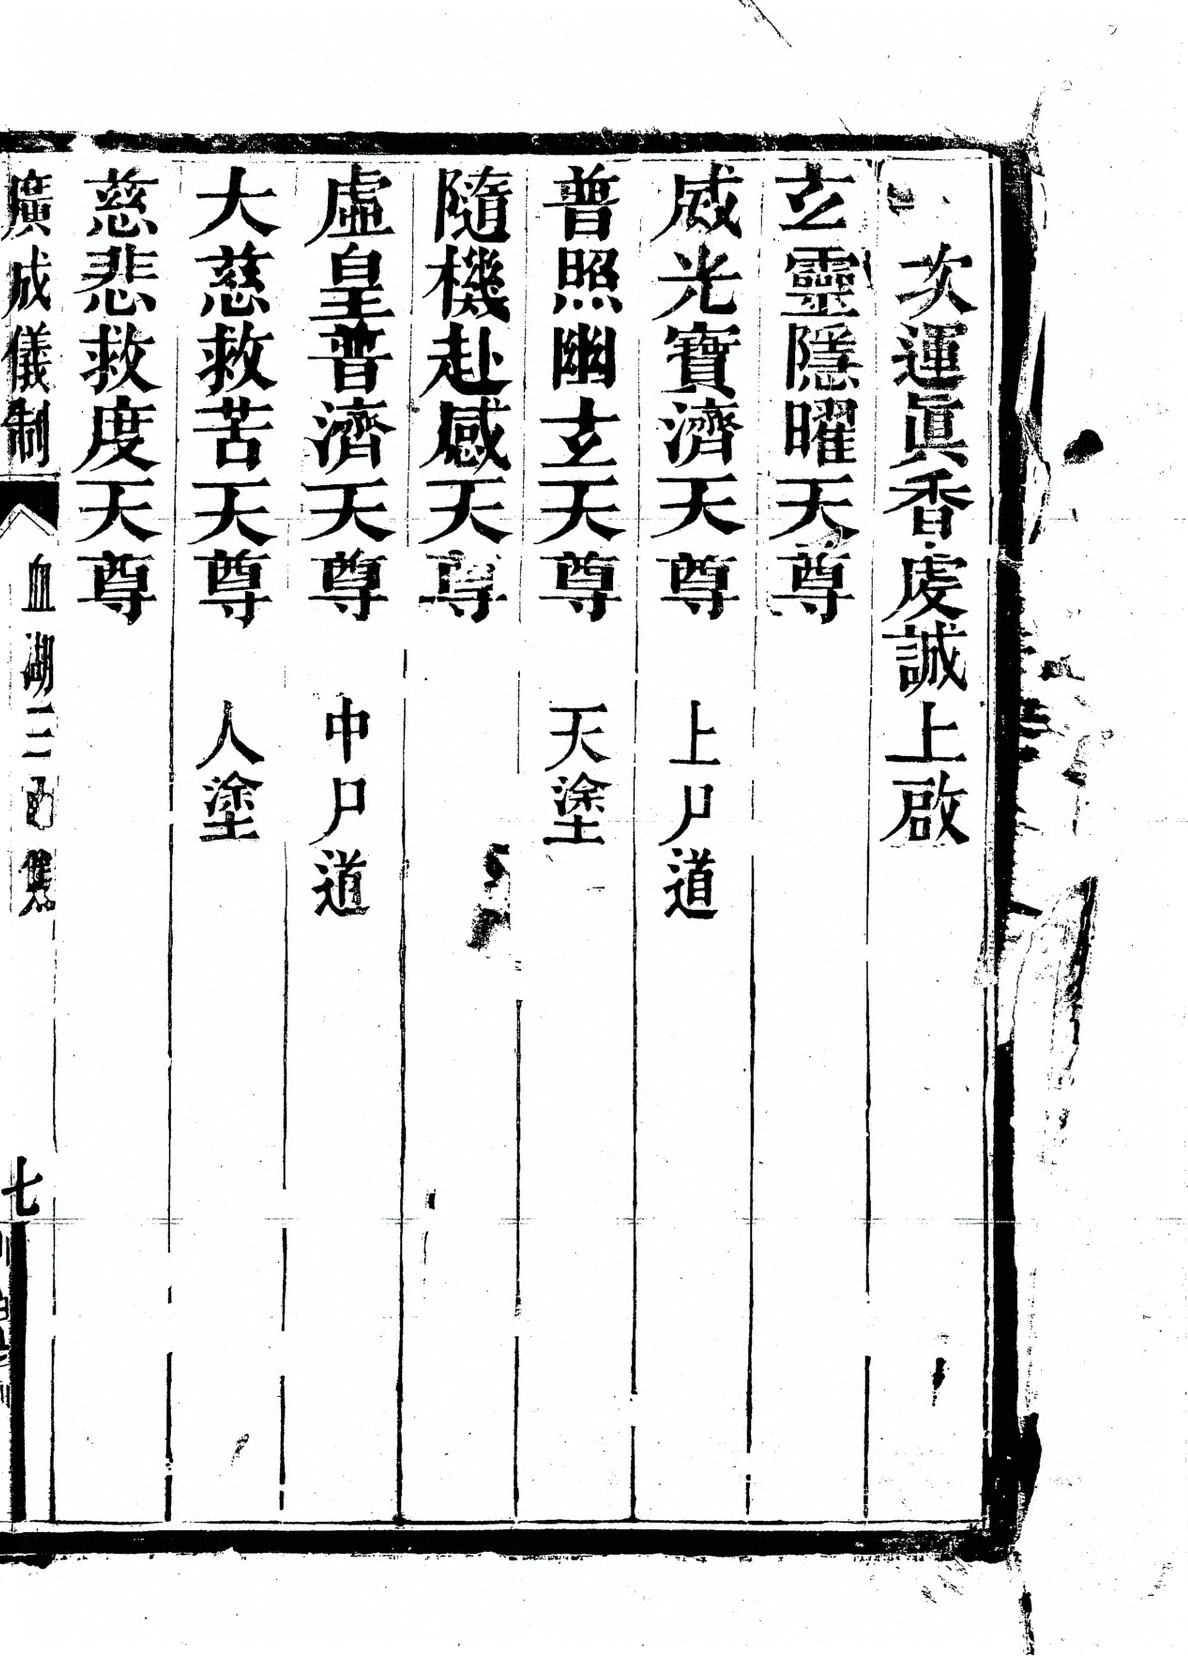 次運眞香虔誠上啟
玄靈隱曜天尊
威光寶濟天尊　上尸道
普照幽玄天尊　天塗
隨機赴感天尊
虛皇普濟天尊　中尸道
大慈救苦天尊　人塗
慈悲救度天尊
廣成儀制　血湖三　七